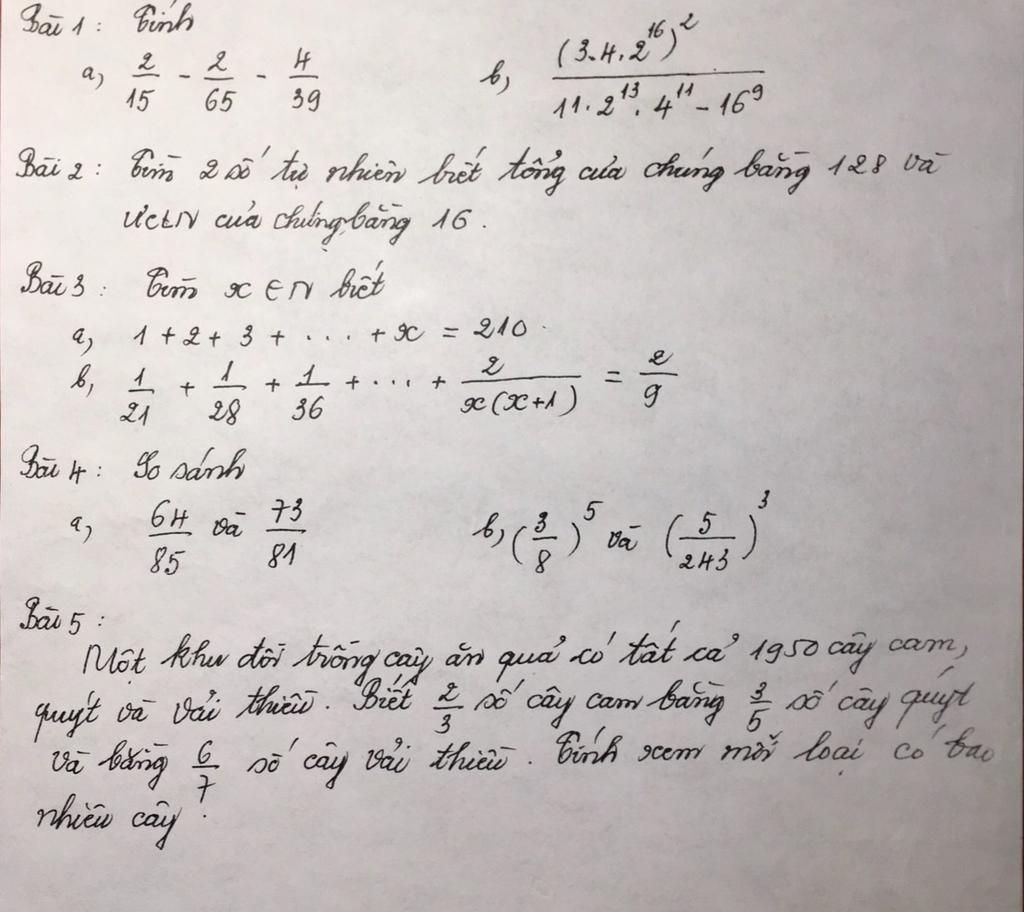 Bài 1 : Tính
a, 2/15 - 2/65 - 4/39 b, (3.4.2^16)^2 / (11.2^13.4^11 - 16^9)
Bài 2 : Tìm 2 số tự nhiên biết tổng của chúng bằng 128 và
ƯCLN của chúng bằng 16.
Bài 3 : Tìm x ∈ N biết
a, 1 + 2 + 3 + ... + x = 210
b, 1/21 + 1/28 + 1/36 + ... + 2/(x(x+1)) = 2/9
Bài 4 : So sánh
a, 64/85 và 73/81 b, (3/8)^5 và (5/243)^3
Bài 5 :
Một khu đồi trồng cây ăn quả có tất cả 1950 cây cam,
quýt và vải thiều. Biết 2/3 số cây cam bằng 3/5 số cây quýt
và bằng 6/7 số cây vải thiều. Tính xem mỗi loại có bao
nhiêu cây.